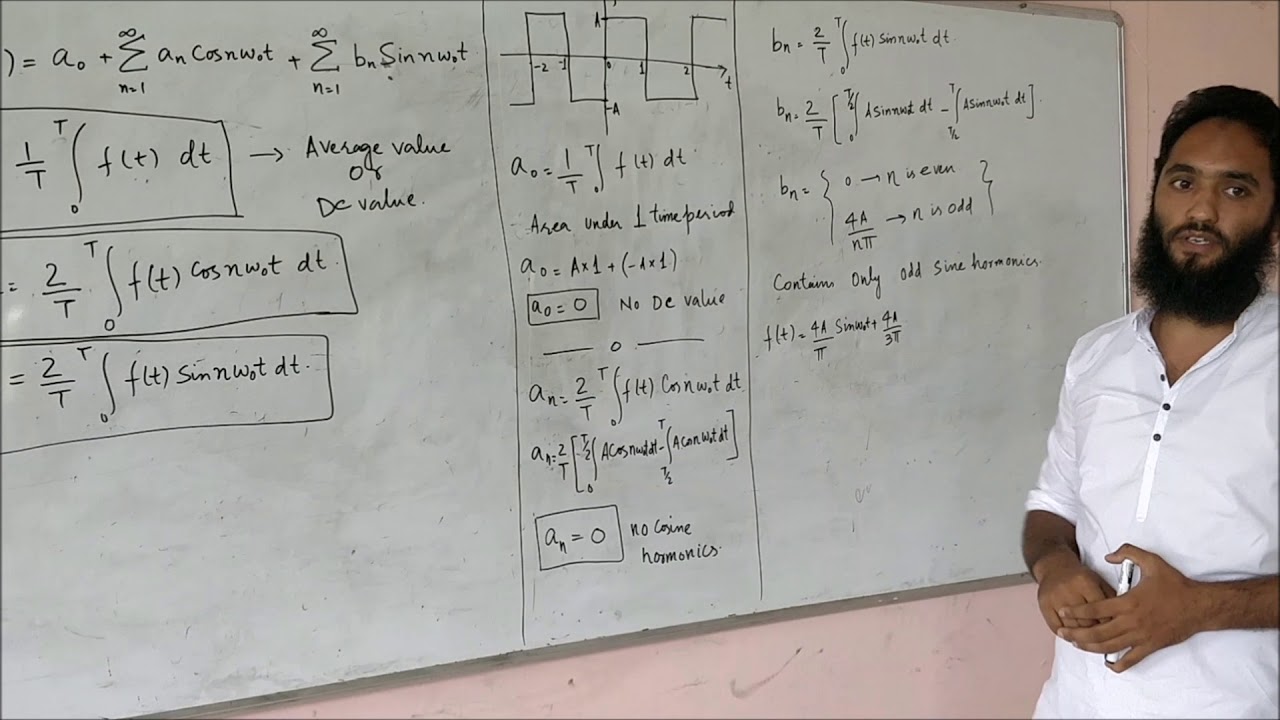 ) = a₀ + ∑_{n=1}^{∞} aₙ Cosnω₀t + ∑_{n=1}^{∞} bₙ Sinnω₀t
1/T ∫₀ᵀ f(t) dt → Average value
Or
DC value.
= 2/T ∫₀ᵀ f(t) Cosnω₀t dt.
= 2/T ∫₀ᵀ f(t) Sinnω₀t dt.
A
-2 -1 0 1 2 t
-A
a₀ = 1/T ∫₀ᵀ f(t) dt
Area under 1 time period
a₀ = A×1 + (-A×1)
a₀ = 0 No DC value
o
aₙ = 2/T ∫₀ᵀ f(t) Cosnω₀t dt.
aₙ = 2/T [ ∫₀^{T/2} A cosnω₀t dt - ∫_{T/2}^{T} A cosnω₀t dt ]
aₙ = 0 no cosine
hormonics.
bₙ = 2/T ∫₀ᵀ f(t) sinnω₀t dt.
bₙ = 2/T [ ∫₀^{T/2} A sinnω₀t dt - ∫_{T/2}^{T} A sinnω₀t dt ].
bₙ = { 0 → n is even
4A/nπ → n is odd }
Contains Only odd sine hormonics.
f(t) = 4A/π Sinω₀t + 4A/3π